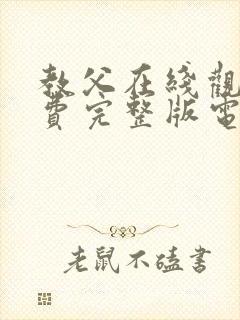 教父在綫觀
費完整版電
老鼠不磕書